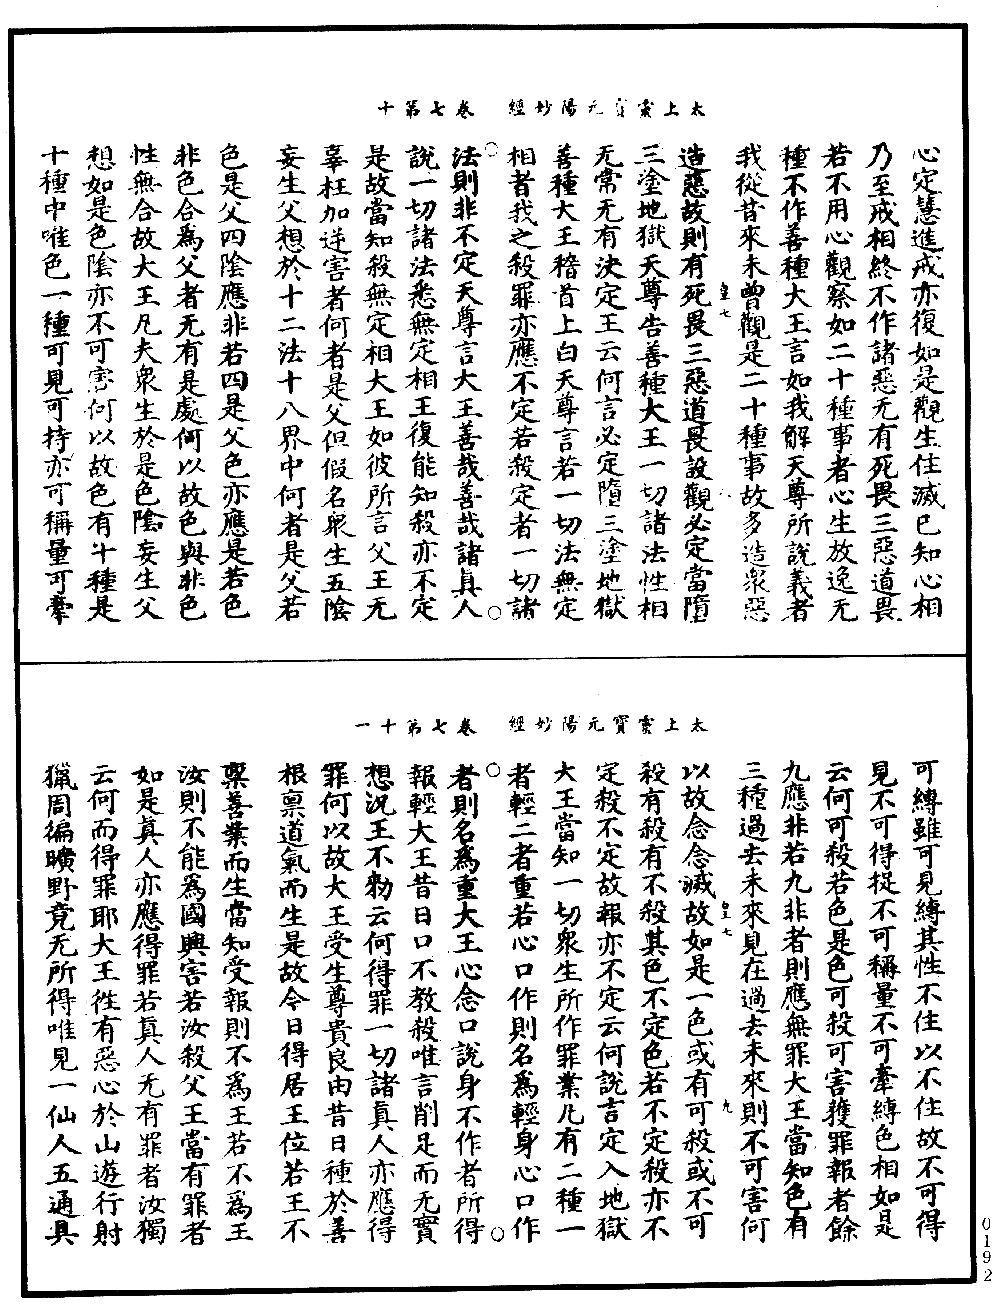 太上靈寳元陽妙經　卷七第十
心定慧進戒亦復如是觀生住滅已知心相
乃至戒相終不作諸惡无有死畏三惡道畏
若不用心觀察如二十種事者心生放逸无
種不作善種大王言如我解天尊所說義者
我從昔來未曾觀是二十種事故多造衆惡
造惡故則有死畏三惡道畏設觀必定當墮
三塗地獄天尊告善種大王一切諸法性相
无常无有決定王云何言必定墮三塗地獄
善種大王稽首上白天尊言若一切法無定
相者我之殺罪亦應不定若殺定者一切諸
法則非不定天尊言大王善哉善哉諸真人
說一切諸法悉無定相王復能知殺亦不定
是故當知殺無定相大王如彼所言父王无
辜枉加逆害者何者是父但假名衆生五陰
妄生父想於十二法十八界中何者是父若
色是父四陰應非若四是父色亦應是若色
非色合爲父者无有是處何以故色與非色
性無合故大王凡夫衆生於是色陰妄生父
想如是色陰亦不可害何以故色有十種是
十種中唯色一種可見可持亦可稱量可牽
皇七
太上靈寳元陽妙經　卷七第十一
可縛雖可見縛其性不住以不住故不可得
見不可得捉不可稱量不可牽縛色相如是
云何可殺若色是色可殺可害獲罪報者餘
九應非若九非者則應無罪大王當知色有
三種過去未來見在過去未來則不可害何
以故念念滅故如是一色或有可殺或不可
殺有殺有不殺其色不定色若不定殺亦不
定殺不定故報亦不定云何說言定入地獄
大王當知一切衆生所作罪業凡有二種一
者輕二者重若心口作則名爲輕身心口作
者則名爲重大王心念口說身不作者所得
報輕大王昔日口不教殺唯言削足而无實
想況王不勑云何得罪一切諸真人亦應得
罪何以故大王受生尊貴良由昔日種於善
根稟道氣而生是故今日得居王位若王不
稟善業而生當知受報則不爲王若不爲王
汝則不能爲國興害若汝殺父王當有罪者
如是真人亦應得罪若真人无有罪者汝獨
云何而得罪耶大王徃有惡心於山遊行射
獵周徧曠野竟无所得唯見一仙人五通具
皇七
九
0192